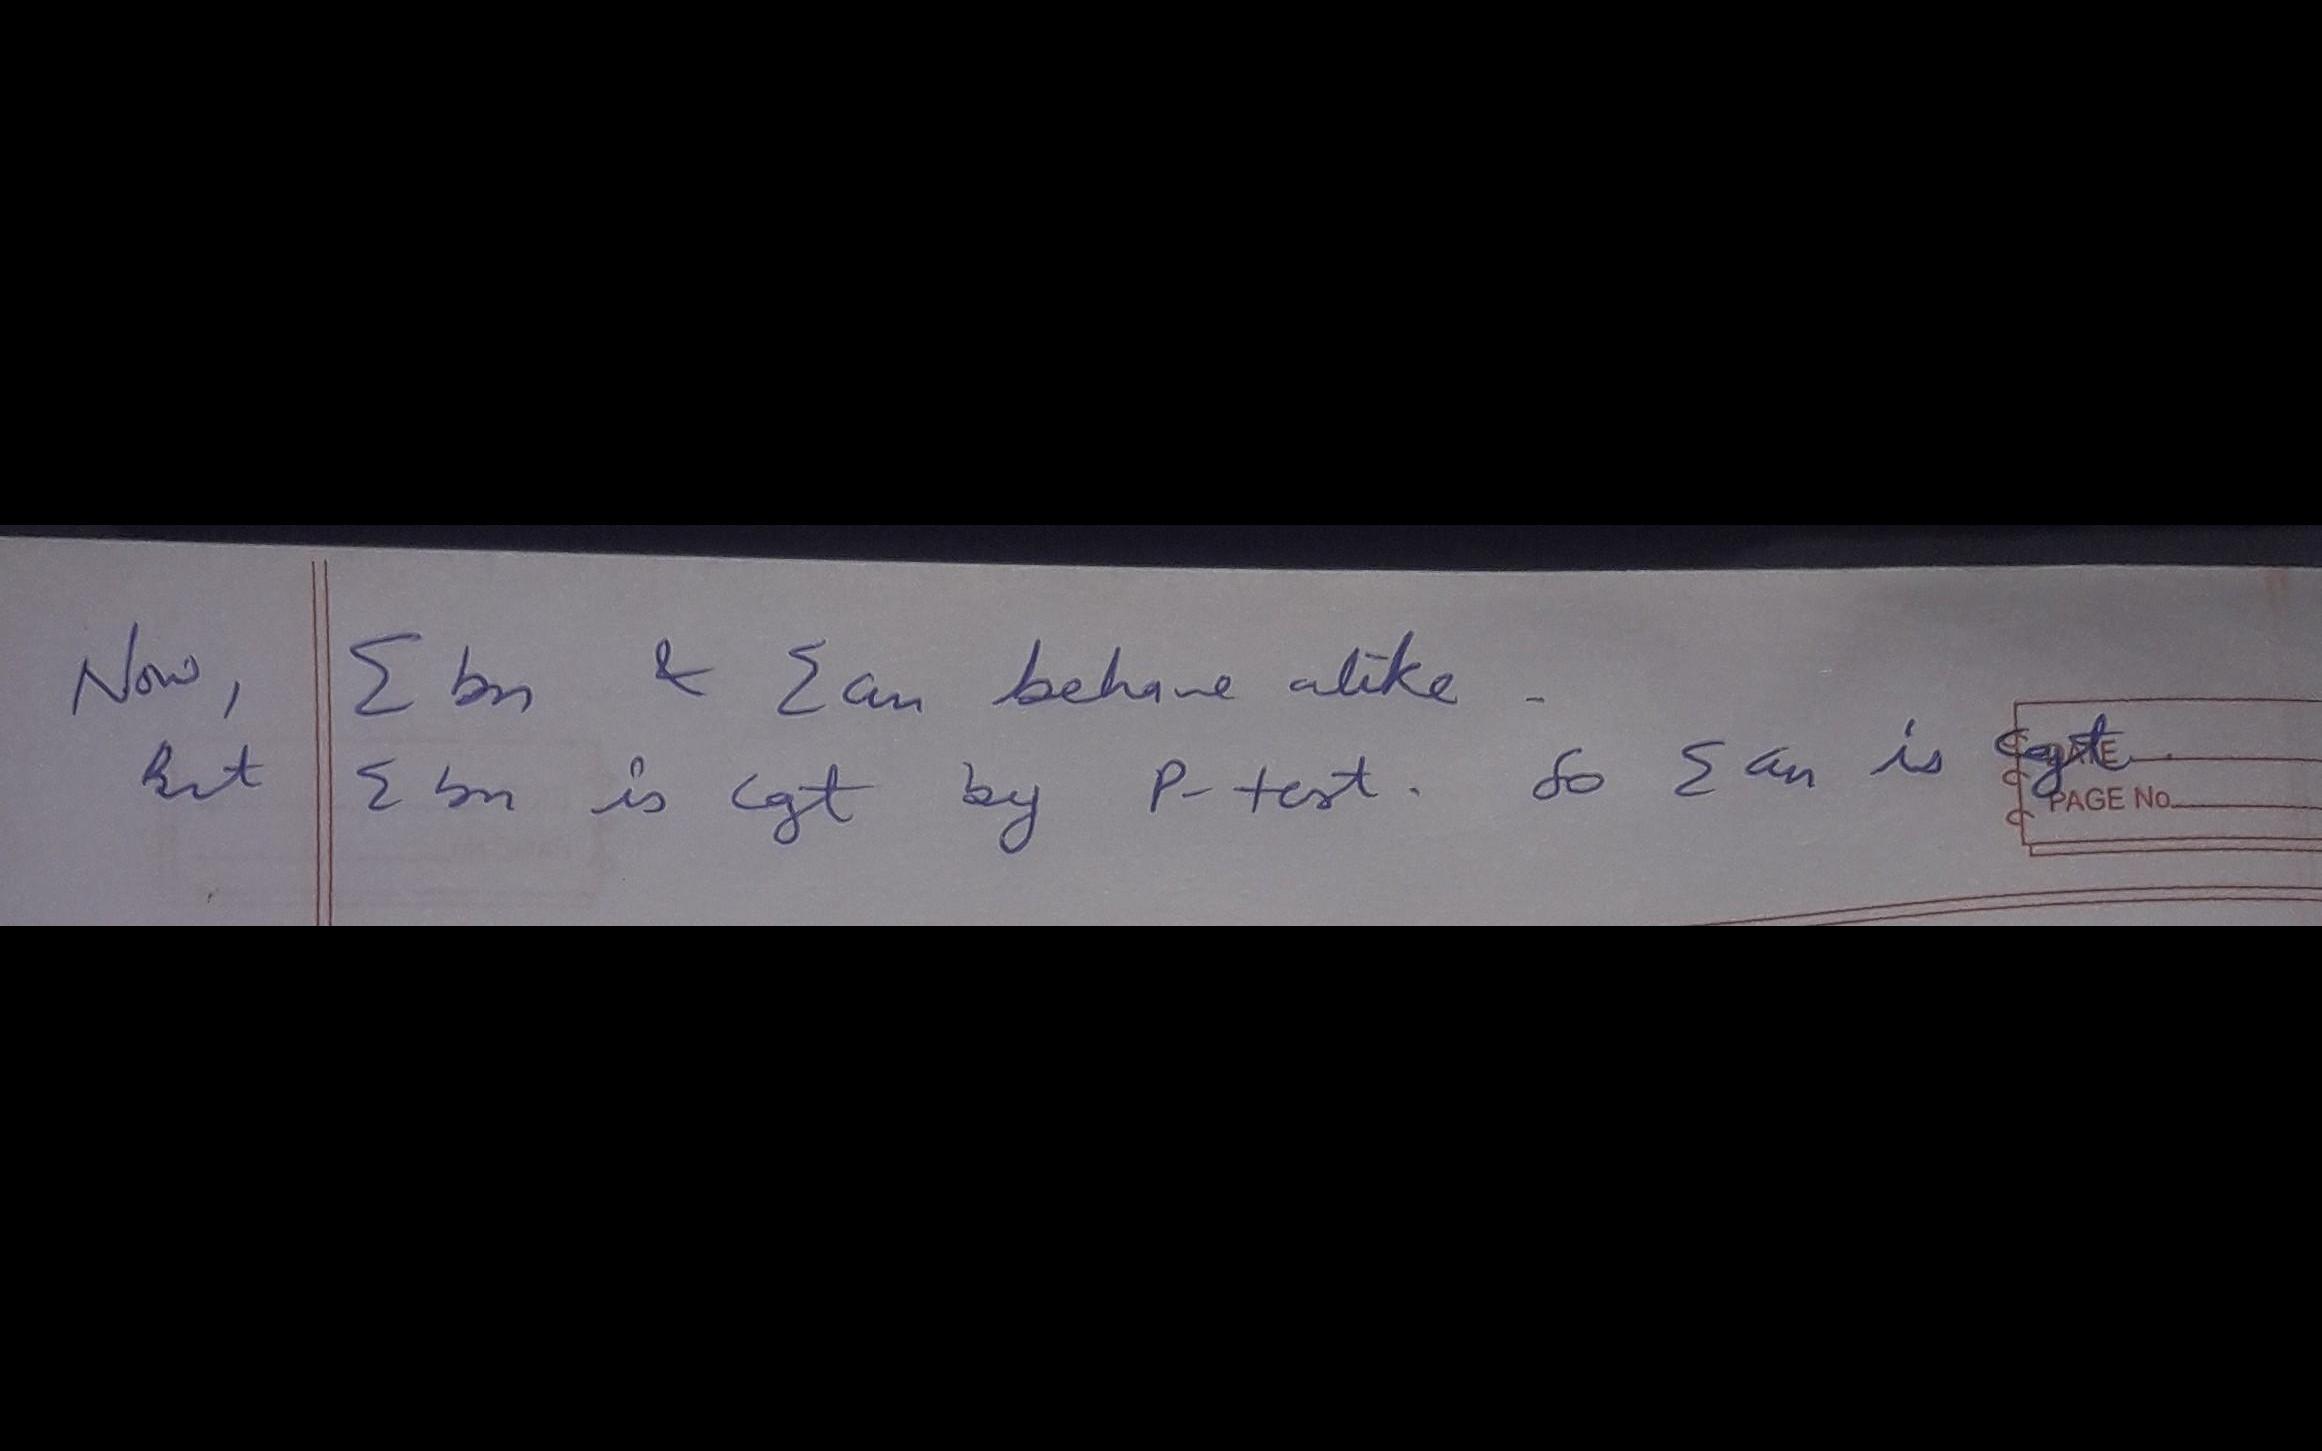 Now, Σ bn & Σ an behave alike.
But Σ bn is cgt by P-test. So Σ an is cgt.
DATE
PAGE No.